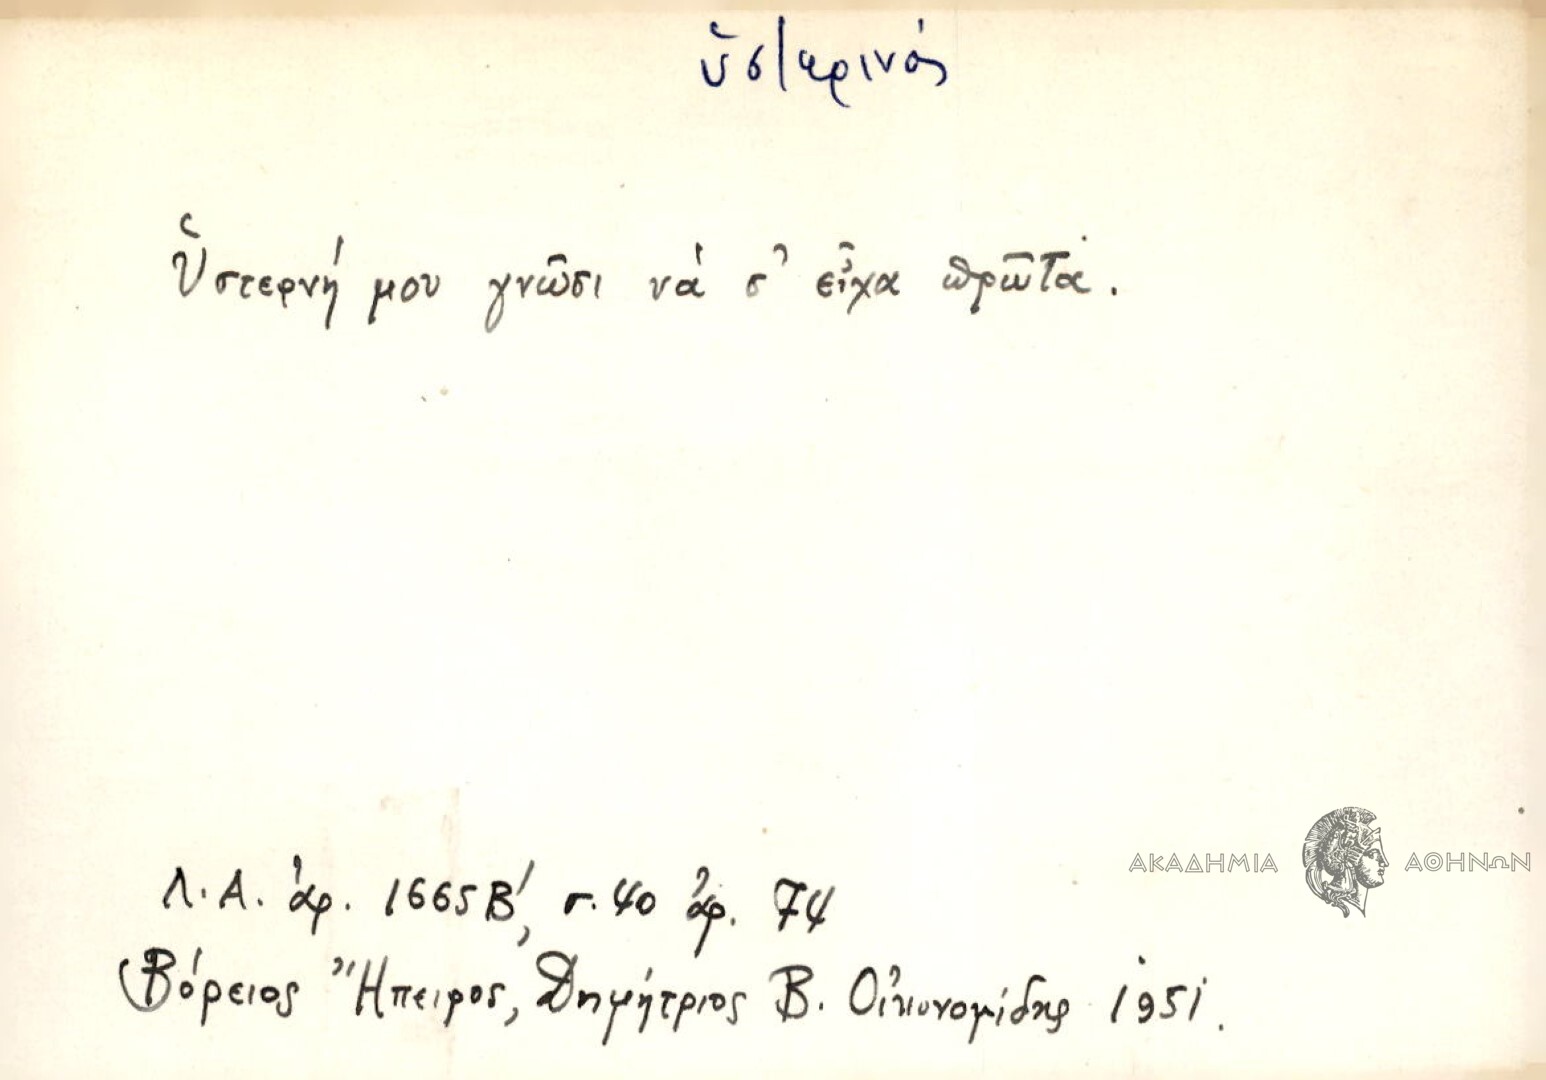 ὑστερινός
Ὑστερνή μου γνῶσι νά σ' εἶχα πρῶτα.
ΑΚΑΔΗΜΙΑ ΑΘΗΝΩΝ
Λ.Α. ἀρ. 1665Β', σ. 40 ἀρ. 74
Βόρειος Ἤπειρος, Δημήτριος Β. Οἰκονομίδης 1951.